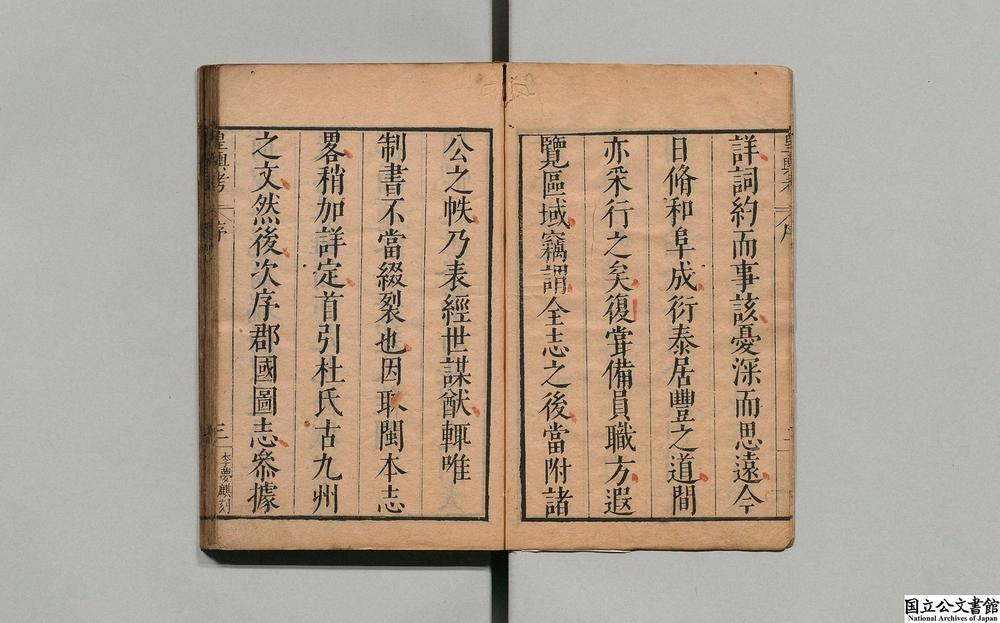 詳詞約而事該憂深而思遠今
日脩和阜成衍泰居豐之道間
亦采行之矣復甞備員職方遐
覽區域竊謂全志之後當附諸
公之帙乃表經世謀猷輒唯
制書不當綴裂也因取閩本志
畧稍加詳定首引杜氏古九州
之文然後次序郡國圖志叅據
皇輿考
序
三
李夢麒刻
国立公文書館
National Archives of Japan